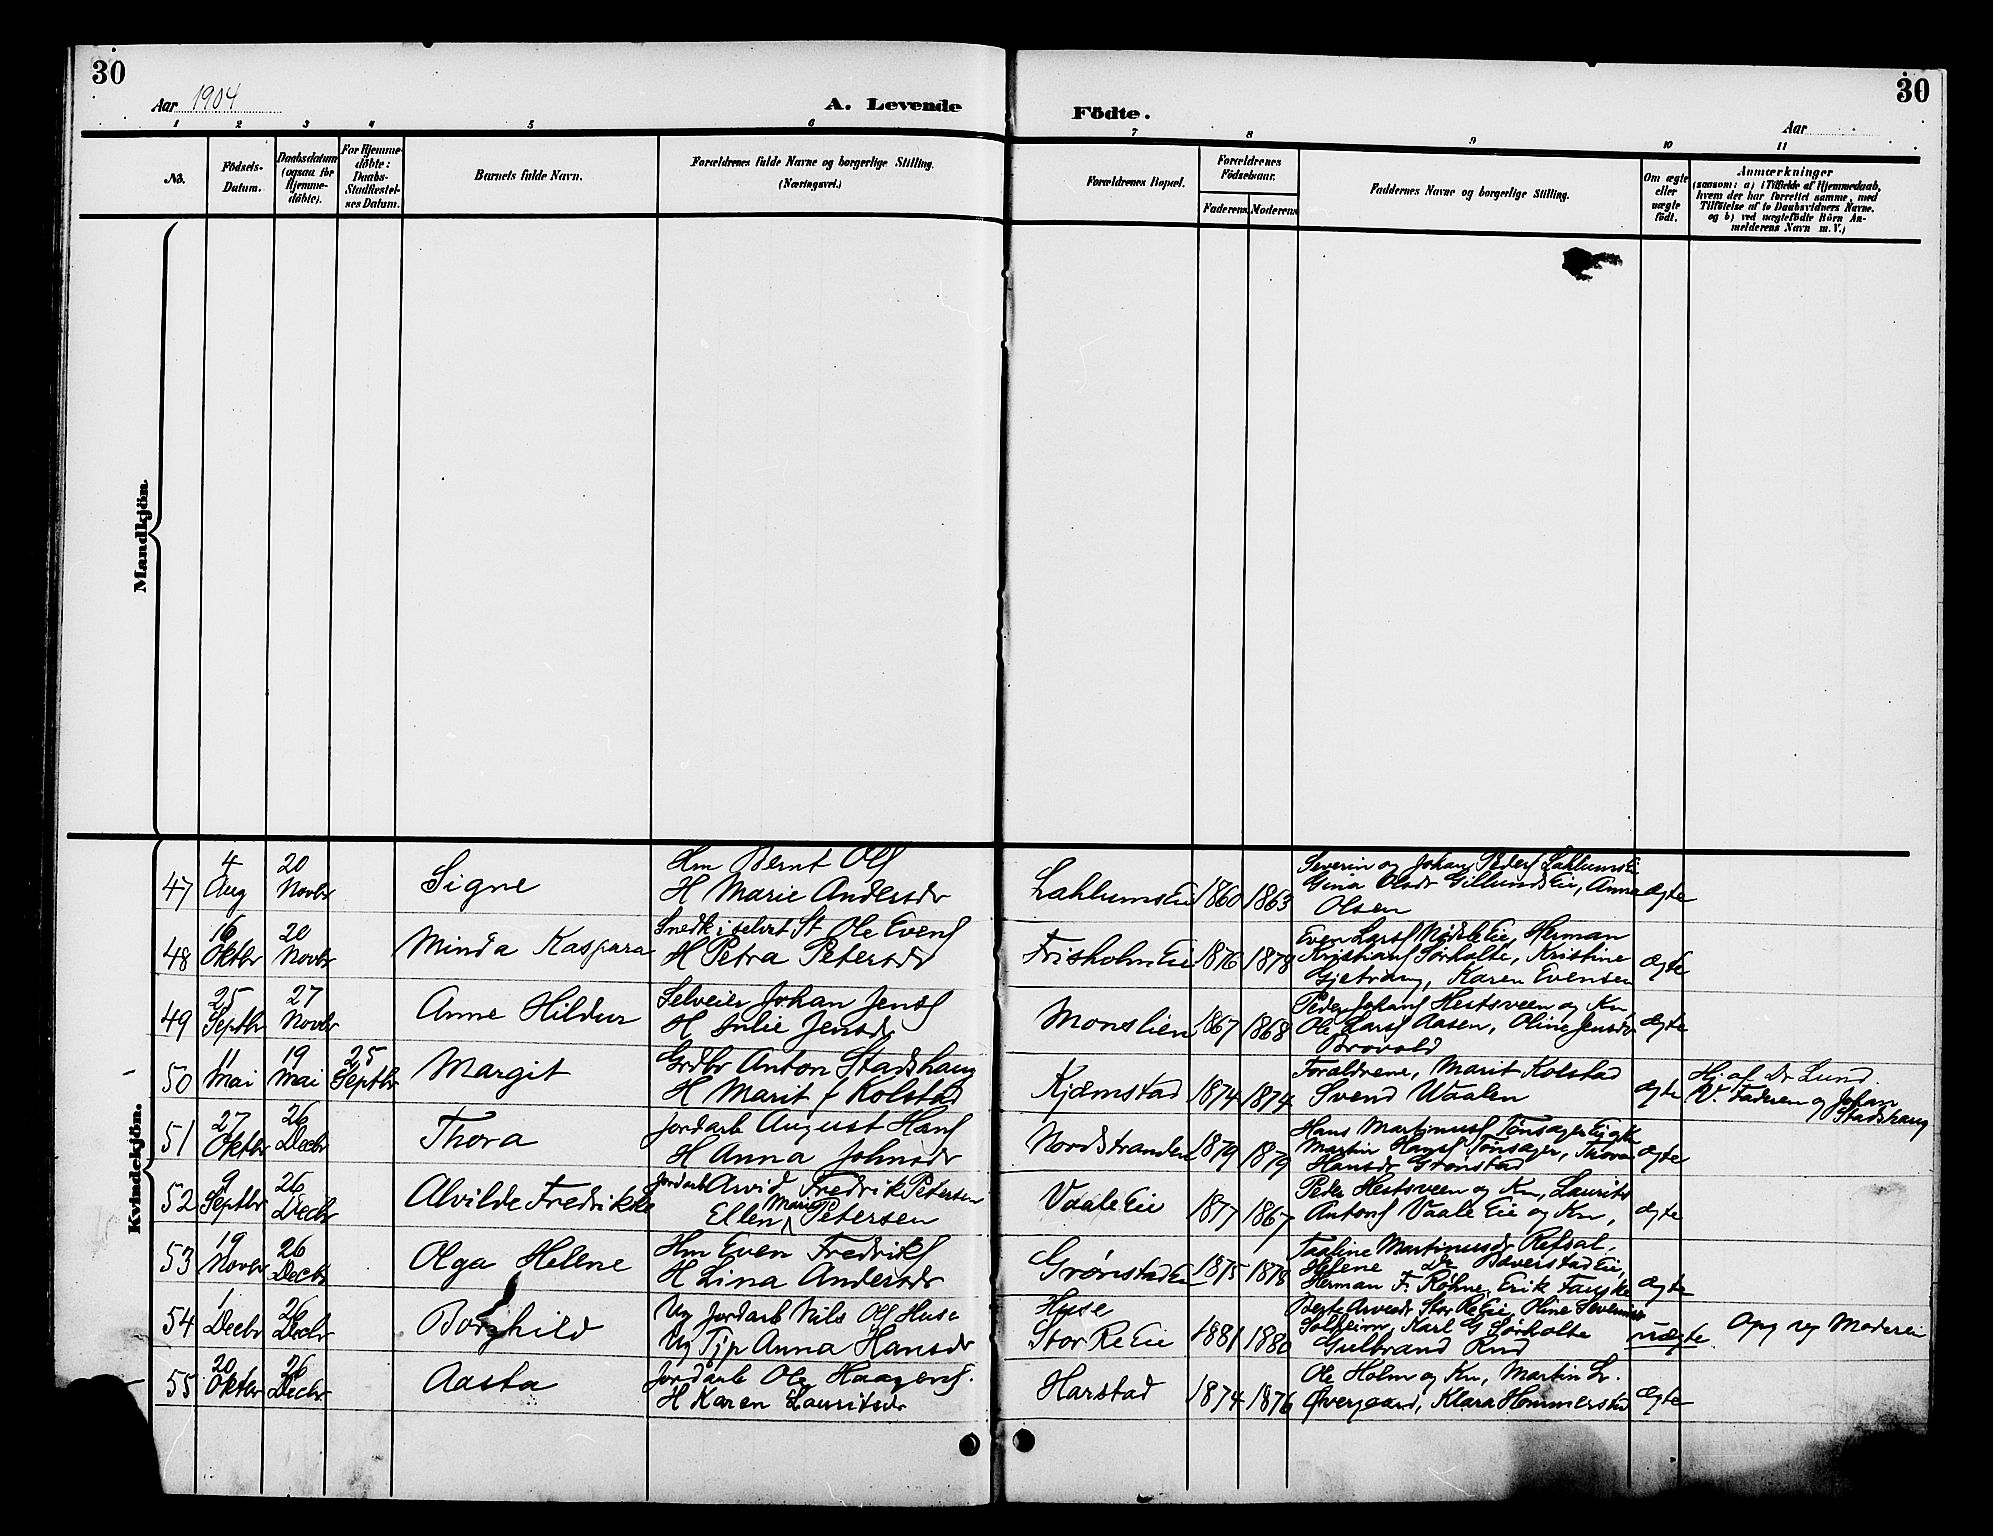 30
30
Aar 1904
A. Levende
Födte.
Aar
1 2 3 4 5 6 7 8 9 10 11
No.
Födsels-
Datum.
Daabsdatum
(ogsaa for
Hjemme-
døbte).
For Hjemme-
døbte:
Daabs-
Stadfæstel-
ses Datum.
Barnets fulde Navn.
Forældrenes fulde Navne og borgerlige Stilling.
(Næringsvei.)
Forældrenes Bopæl.
Forældrenes
Födselsaar.
Faderens.
Moderens.
Faddernes Navne og borgerlige Stilling.
Om ægte
eller
uægte
födt.
Anmærkninger
(saasom: a) i Tilfælde af Hjemmedaab,
hvem der har forrettet samme, med
Tilföielse af to Daabsvidners Navne.
og b) ved uægtefödte Börn An-
melderens Navn m. V.)
Mandkjön.
Kvindekjön.
47
4
Aug
20
Novbr
Signe
Hm Bernt Ols
H Marie Andersdr
Lahlums Eie
1860
1863
Severin og Johan Peders Lahlums Eie
Gina Olsdr Gillunds Eie, Anna
Olsen
ægte
48
16
Oktbr
20
Novbr
Minda Kaspara
Snedk i selvst St Ole Evens
H Petra Petersdr
Frisholm Eie
1876
1878
Even Lars Eie, Herman
Kristians Sørholte, Kristine
Gjetrang, Karen Evensen
ægte
49
25
Septbr
27
Novbr
Anne Hildur
Selveier Johan Jens
H Julie Jensdr
Monslien
1867
1868
Peder Johans Hestsveen og Kn,
Ole Lars Aasen, Oline Jensdr
Brovold
ægte
50
11
Mai
19
Mai
25
Septbr
Margit
Grdbr Anton Stadshaug
H Marit f Kolstad
Kjæmstad
1874
1874
Foraldrene, Marit Kolstad
Svend Waalen
ægte
Hj. af Dr Lund.
V. Faderen og Johan
Stadshaug
51
27
Oktbr
26
Decbr
Thora
Jordarb August Hans
H Anna Johnsdr
Nordstranden
1879
1879
Hans Martinus Tønsager
Martin Hans Tønsager, Thora
Hansdr Grønstad
ægte
52
9
Septbr
26
Decbr
Alvilde Fredrikke
Jordarb Arvid Fredrik Petersen
Ellen Marie Petersen
Vaale Eie
1877
1867
Peder Hestsveen og Kn, Laurits
Antons Vaale Eie og Kn,
ægte
53
19
Novbr
26
Decbr
Olga Helene
Hm Even Fredriks
H Lina Andersdr
Grønstad Eie
1875
1878
Taaline Martinusdr Refsal,
Helene Do Baverstad Eie,
Herman F. Røhne, Erik Fauske
ægte
54
1
Decbr
26
Decbr
Borghild
Ug Jordarb Nils Ols Huse
Ug Tjp Anna Hansdr
Huse
Stor Re Eie
1881
1880
Berte Arvesdr Stor Re Eie, Oline
Solheim, Karl G Sørholte
Gulbrand Rud
uægte
Opg og Moderen
55
20
Oktbr
26
Decbr
Aasta
Jordarb Ole Haagens.
H Karen Lauritsdr
Harstad
1874
1876
Ole Holm og Kn, Martin Lr.
Øvergaard, Klara Hommerstad
ægte